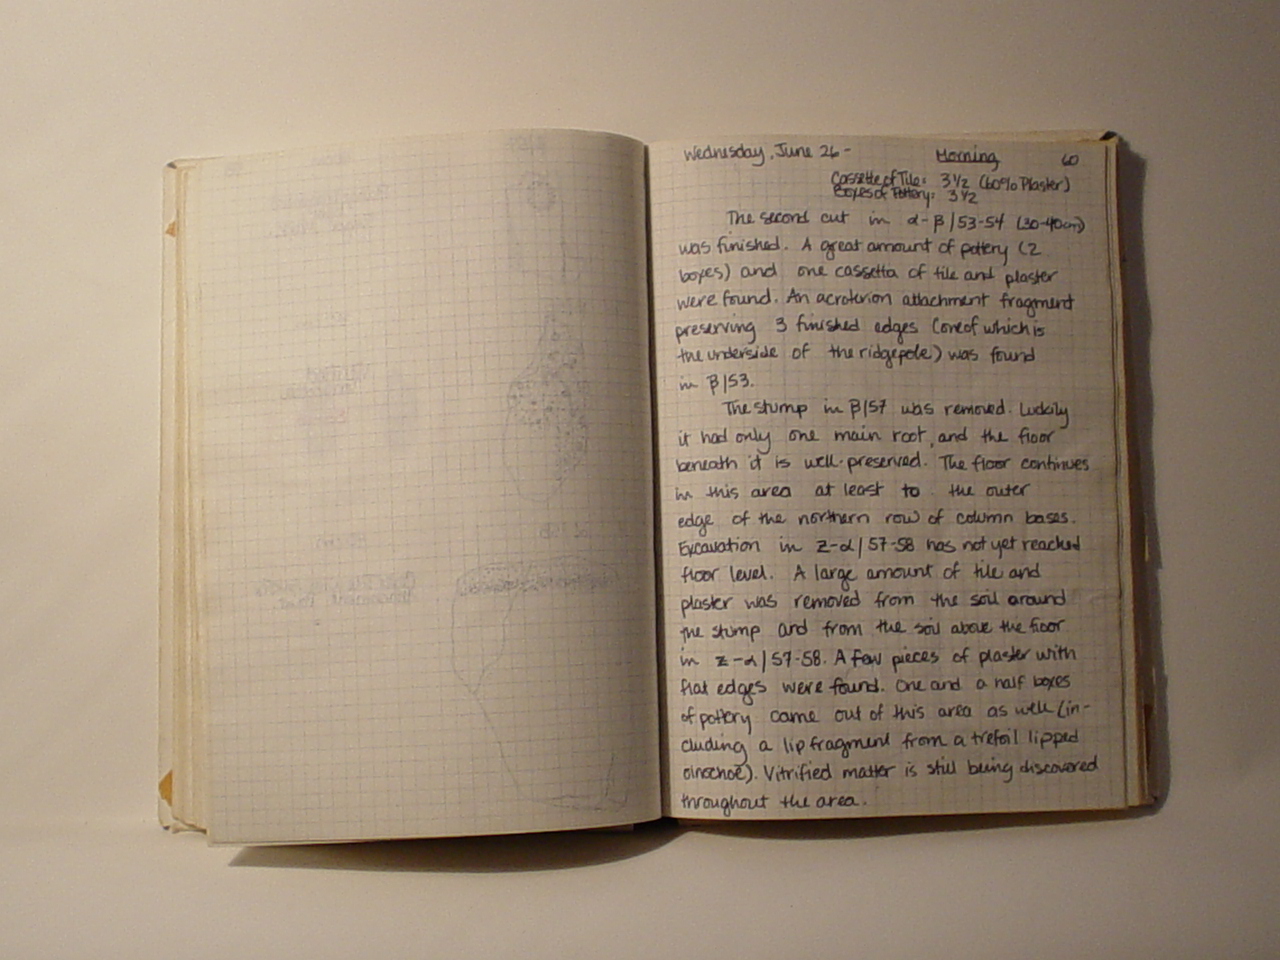 Wednesday, June 26 - Morning 60
Cassette of Tile: 3 1/2 (60% Plaster)
Boxes of Pottery: 3 1/2
The second cut in α-β/53-54 (30-40cm)
was finished. A great amount of pottery (2
boxes) and one cassetta of tile and plaster
were found. An acroterion attachment fragment
preserving 3 finished edges (one of which is
the underside of the ridgepole) was found
in β/53.
The stump in β/57 was removed. Luckily
it had only one main root, and the floor
beneath it is well-preserved. The floor continues
in this area at least to the outer
edge of the northern row of column bases.
Excavation in Z-α/57-58 has not yet reached
floor level. A large amount of tile and
plaster was removed from the soil around
the stump and from the soil above the floor
in Z-α/57-58. A few pieces of plaster with
flat edges were found. One and a half boxes
of pottery came out of this area as well (in-
cluding a lip fragment from a trefoil lipped
oinochoe). Vitrified matter is still being discovered
throughout the area.